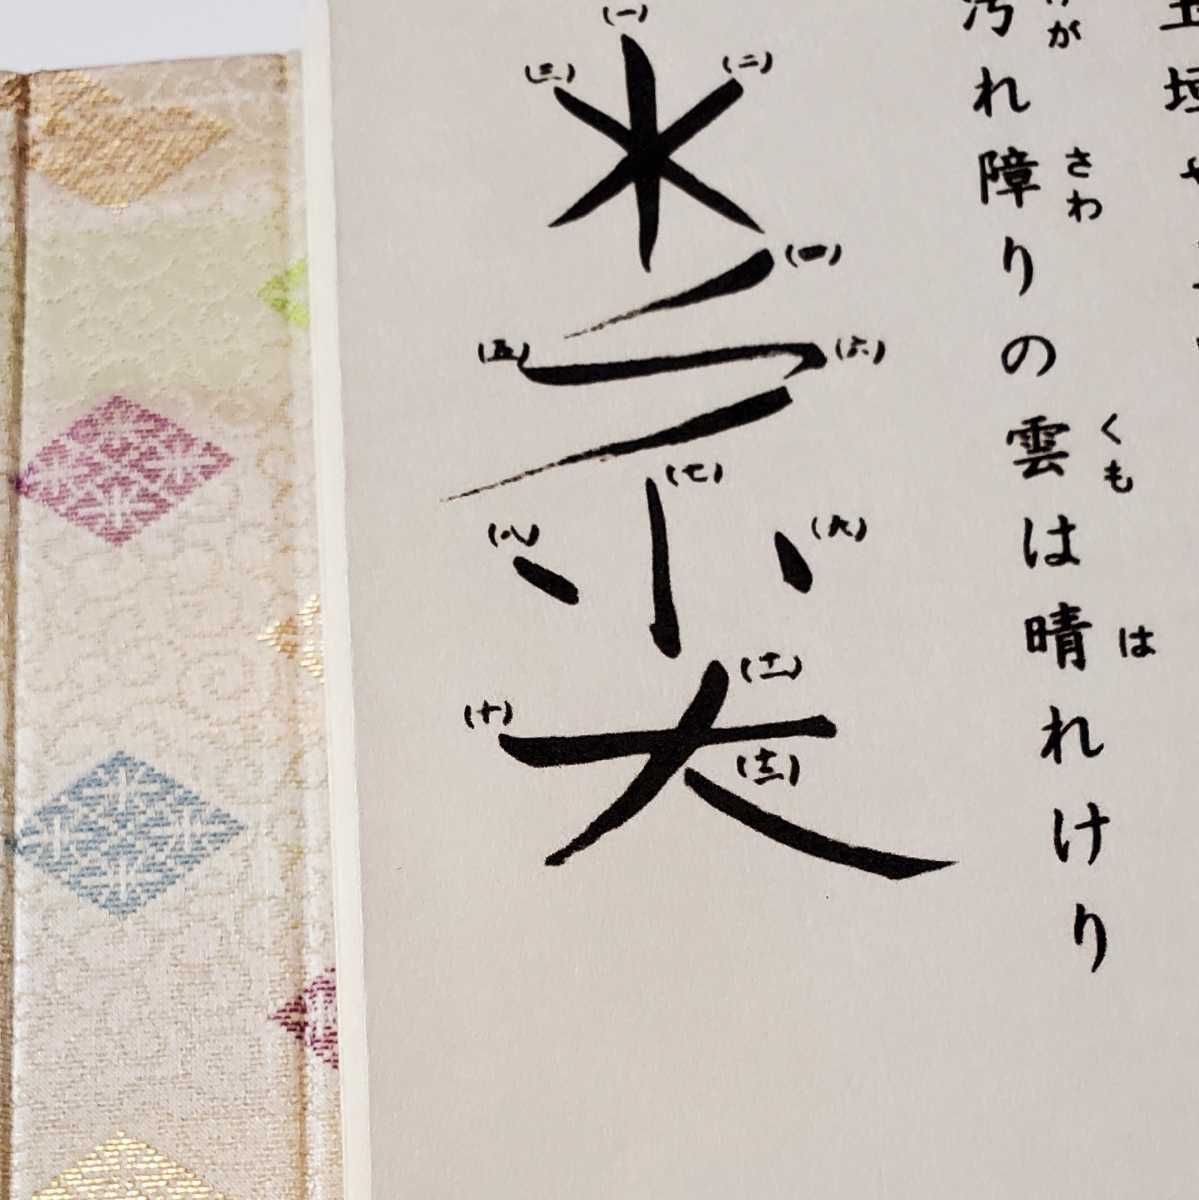 汚れ障りの雲は晴れけり
が
さわ
くも
は
(一)
(二)
(三)
(四)
(五)
(六)
(七)
(八)
(九)
(十)
(十一)
(十二)